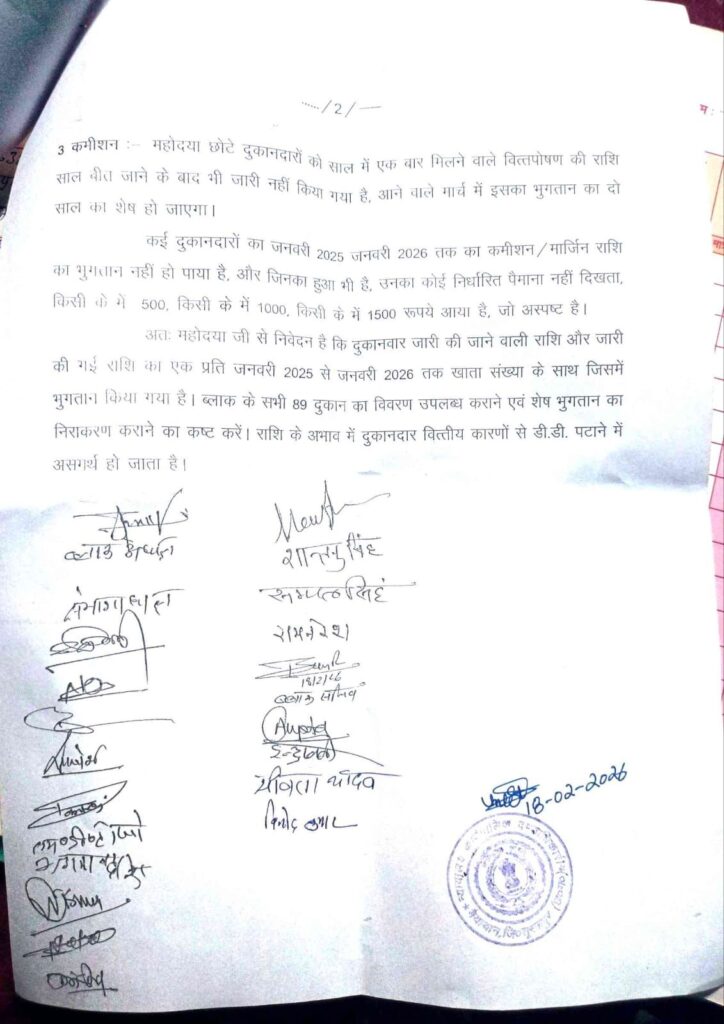 --/2/--
3 कमीशन :- महोदया छोटे दुकानदारों को साल में एक बार मिलने वाले वित्तपोषण की राशि
साल बीत जाने के बाद भी जारी नहीं किया गया है, आने वाले मार्च में इसका भुगतान का दो
साल का शेष हो जाएगा।
कई दुकानदारों का जनवरी 2025 जनवरी 2026 तक का कमीशन/मार्जिन राशि
का भुगतान नहीं हो पाया है, और जिनका हुआ भी है, उनका कोई निर्धारित पैमाना नहीं दिखता,
किसी के में 500, किसी के में 1000, किसी के में 1500 रूपये आया है, जो अस्पष्ट है।
अतः महोदया जी से निवेदन है कि दुकानवार जारी की जाने वाली राशि और जारी
की गई राशि का एक प्रति जनवरी 2025 से जनवरी 2026 तक खाता संख्या के साथ जिसमें
भुगतान किया गया है। ब्लाक के सभी 89 दुकान का विवरण उपलब्ध कराने एवं शेष भुगतान का
निराकरण कराने का कष्ट करें। राशि के अभाव में दुकानदार वित्तीय कारणों से डी.डी. पटाने में
असमर्थ हो जाता है।
ब्लाक अध्यक्ष
शान्तनु सिंह
रामनरेश
18/2/26
ब्लाक सचिव
यादव
विनोद कुमार
18-02-2026